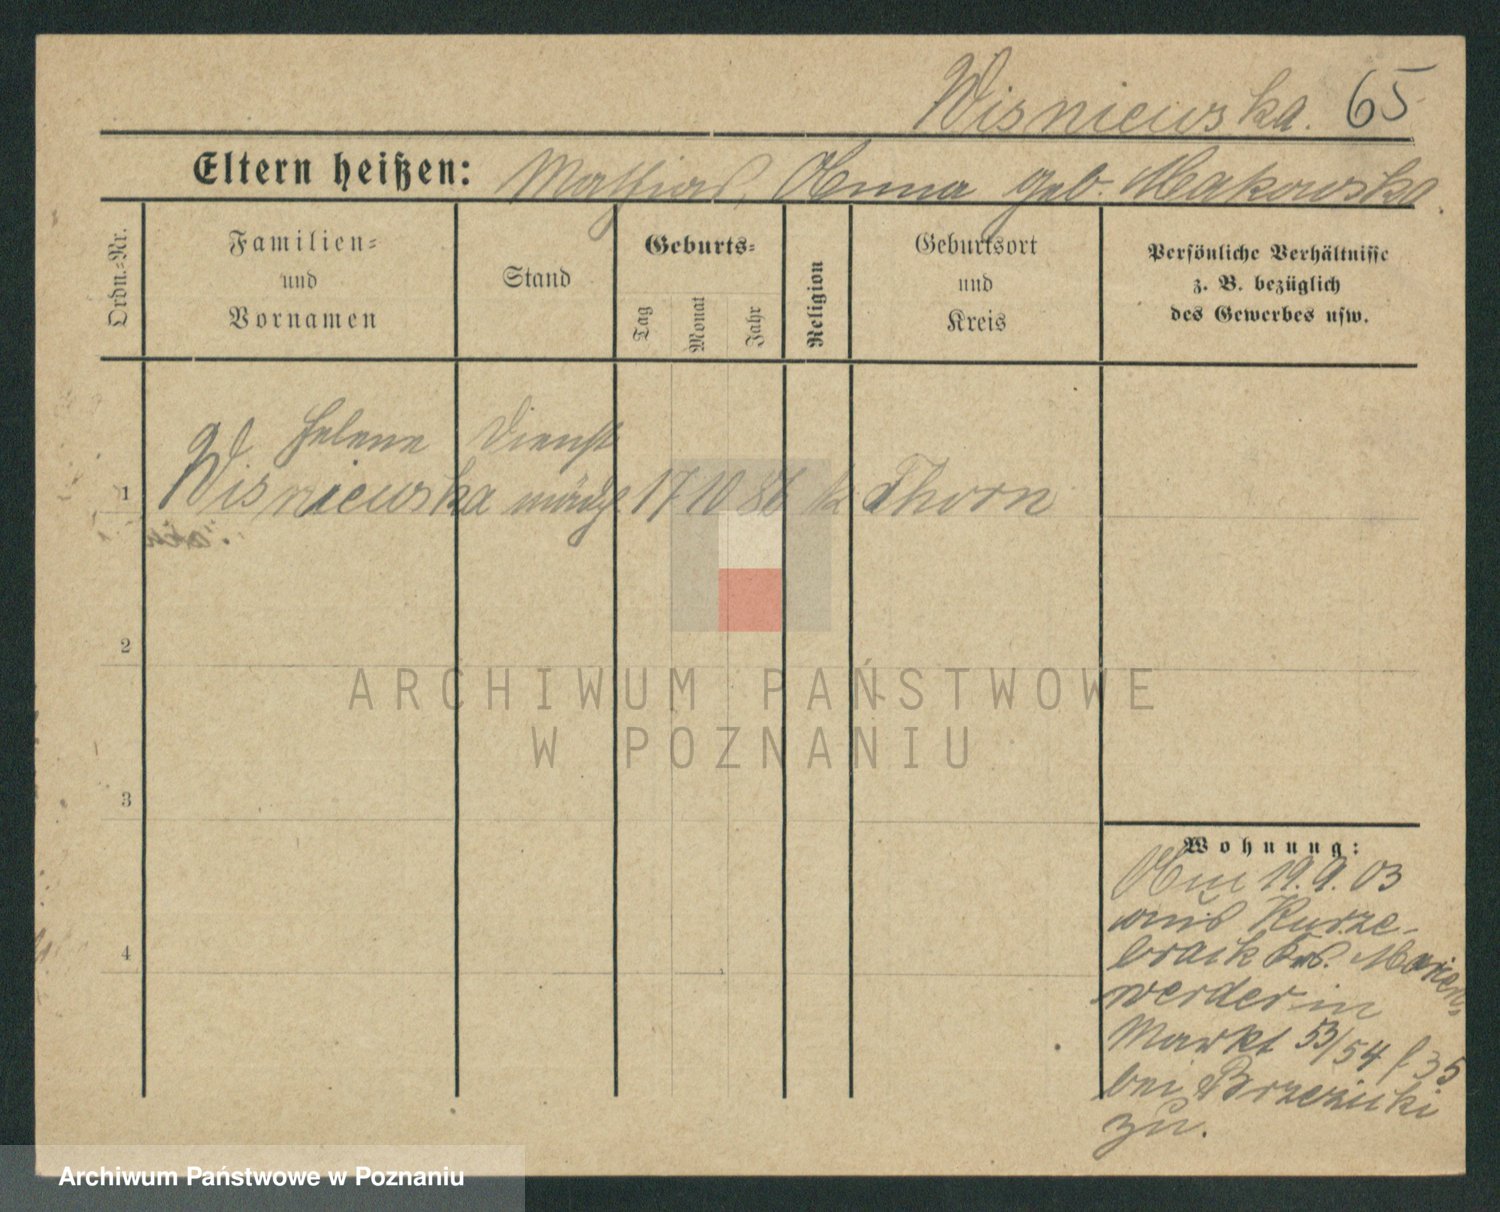 Wisniewska. 65
Eltern heißen: Mathias, Anna geb. Makowska.
Ordn.=Nr.
Familien=
und
Vornamen
Stand
Geburts=
Tag
Monat
Jahr
Religion
Geburtsort
und
Kreis
Persönliche Verhältnisse
z. B. bezüglich
des Gewerbes usw.
Helene Dienst
1 Wisniewska mädch. 17 10 86 k Thorn
2
3
4
Wohnung:
Am 19.9.03
aus Kurze-
brack Krs. Marien-
werder in
Markt 53/54 35
bei Brzezinski
zu.
ARCHIWUM PAŃSTWOWE
W POZNANIU
Archiwum Państwowe w Poznaniu